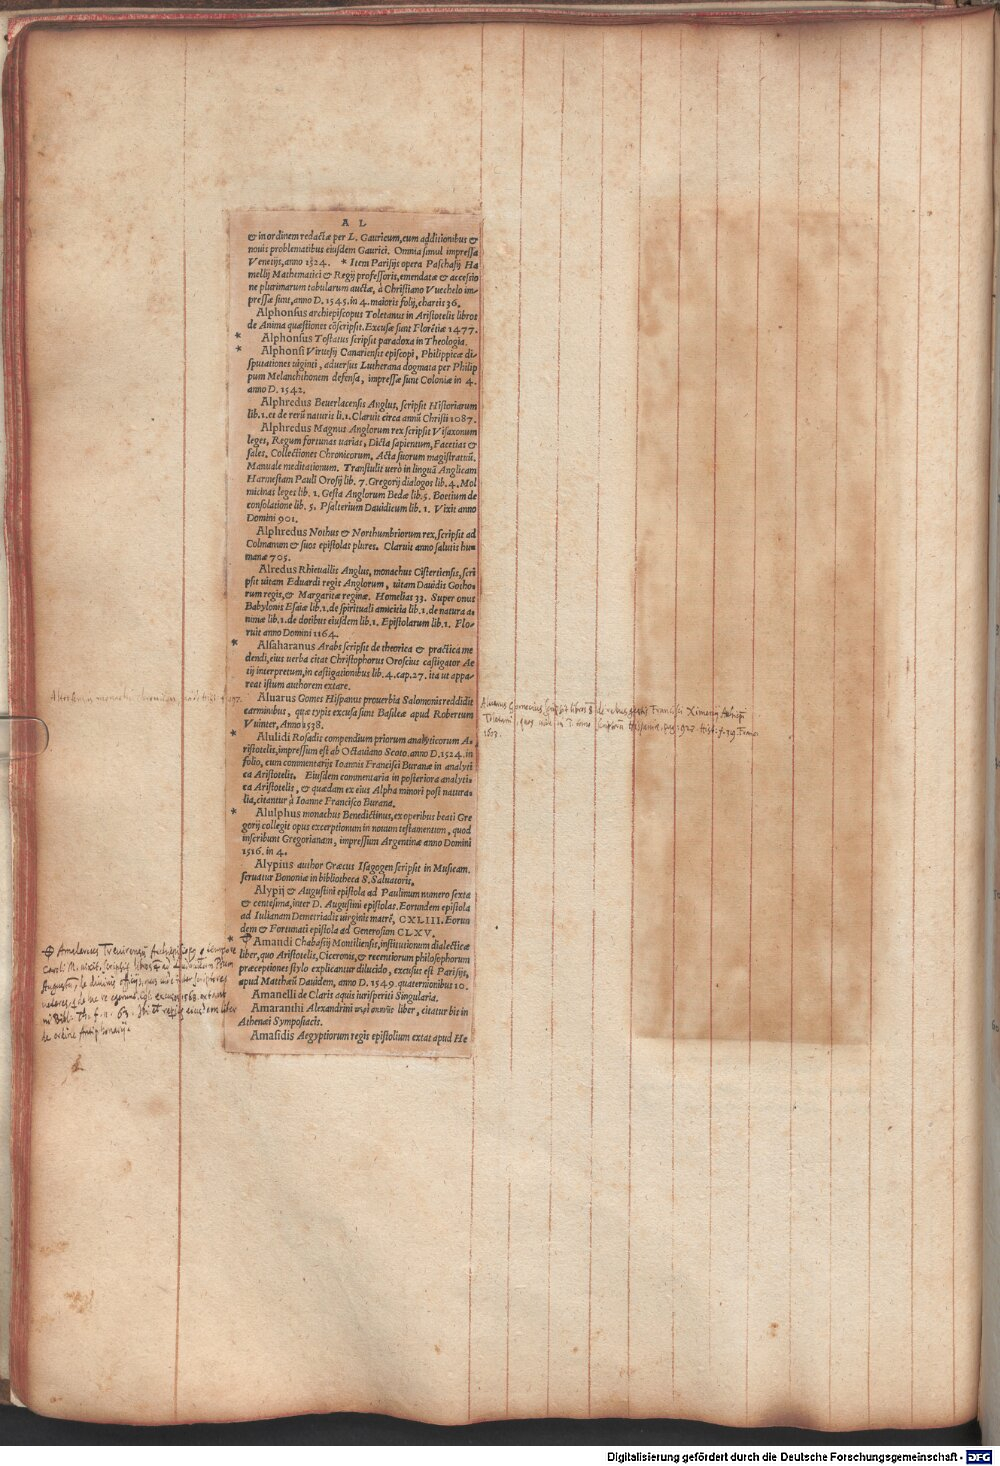 A L
& in ordinem redactæ per L. Gauricum, cum additionibus &
nouis problematibus eiusdem Gaurici. Omnia simul impressa
Venetijs, anno 1524. * Item Parisijs opera Paschasij Ha
mellij Mathematici & Regij professoris, emendatæ & accessio
ne plurimarum tabularum auctæ, à Christiano Vuechelo im-
pressæ sunt, anno D. 1545. in 4. maioris folij, chartis 36.
Alphonsus archiepiscopus Toletanus in Aristotelis libros
de Anima quæstiones cõscripsit. Excusæ sunt Florẽtiæ 1477.
* Alphonsus Tostatus scripsit paradoxa in Theologia.
* Alphonsi Viruesij Canariensis episcopi, Philippicæ di-
sputationes uiginti, aduersus Lutherana dogmata per Philip
pum Melanchthonem defensa, impressæ sunt Coloniæ in 4.
anno D. 1542.
Alphredus Beuerlacensis Anglus, scripsit Historiarum
lib. 1. et de rerũ naturis li. 1. Claruit circa annũ Christi 1087.
Alphredus Magnus Anglorum rex scripsit Visaxonum
leges, Regum fortunas uarias, Dicta sapientum, Facetias &
sales. Collectiones Chronicorum. Acta suorum magistratuũ.
Manuale meditationum. Transtulit uerò in linguã Anglicam
Harmestam Pauli Orosij lib. 7. Gregorij dialogos lib. 4. Mol
micinas leges lib. 1. Gesta Anglorum Bedæ lib. 5. Boetium de
consolatione lib. 5. Psalterium Dauidicum lib. 1. Vixit anno
Domini 901.
Alphredus Nothus & Northumbriorum rex, scripsit ad
Colmanum & suos epistolas plures. Claruit anno salutis hu-
manæ 705.
Alredus Rhieuallis Anglus, monachus Cistertiensis, scri
psit uitam Eduardi regis Anglorum, uitam Dauidis Gotho-
rum regis, & Margaritæ reginæ. Homelias 33. Super onus
Babylonis Esaiæ lib. 1. de spirituali amicitia lib. 1. de natura a-
nimæ lib. 1. de dotibus eiusdem lib. 1. Epistolarum lib. 1. Flo-
ruit anno Domini 1164.
* Alsaharanus Arabs scripsit de theorica & practica me
dendi, eius uerba citat Christophorus Oroscius castigator Ae
tij interpretum, in castigationibus lib. 4. cap. 27. ita ut appa-
reat istum authorem extare.
Aluarus Gomes Hispanus prouerbia Salomonis reddidit
carminibus, quæ typis excusa sunt Basileæ apud Robertum
Vuinter, Anno 1538.
* Alulidi Rosadis compendium priorum analyticorum A-
ristotelis, impressum est ab Octauiano Scoto. anno D. 1524. in
folio, cum commentarijs Ioannis Francisci Buranæ in analyti
ca Aristotelis. Eiusdem commentaria in posteriora analyti-
ca Aristotelis, & quædam ex eius Alpha minori post natura-
lia, citantur à Ioanne Francisco Burana.
* Alulphus monachus Benedictinus, ex operibus beati Gre
gorij collegit opus exceptionum in nouum testamentum, quod
inscribunt Gregorianam, impressum Argentinæ anno Domini
1516. in 4.
Alypius author Græcus Isagogen scripsit in Musicam.
seruatur Bononiæ in bibliotheca S. Saluatoris.
Alypij & Augustini epistola ad Paulinum numero sexta
& centesima, inter D. Augustini epistolas. Eorundem epistola
ad Iulianam Demetriadis uirginis matrẽ, CXLIII. Eorun
dem & Fortunati epistola ad Generosum CLXV.
* Amandi Chabasij Montiliensis, institutionum dialecticæ
liber, quo Aristotelis, Ciceronis, & recentiorum philosophorum
præceptiones stylo explicantur dilucido, excusus est Parisijs,
apud Matthæũ Dauidem, anno D. 1549. quaternionibus 10.
Amanelli de Claris aquis iurisperiti Singularia.
Amaranthi Alexandrini περὶ σκηνῆς liber, citatur bis in
Athenæi Symposiacis.
Amasidis Aegyptiorum regis epistolium extat apud He
Aluarus Gomecius, scripsit libros 8 de rebus gestis Francisci Ximenij Archiep̃i
Toletani,
1603.
Amalarius Treuirensis Archiepiscopus
Caroli M. vixit, scripsit
Augustum, de diuinis officijs,
1568.
de ordine Antiphonarij.
Digitalisierung gefördert durch die Deutsche Forschungsgemeinschaft - DFG